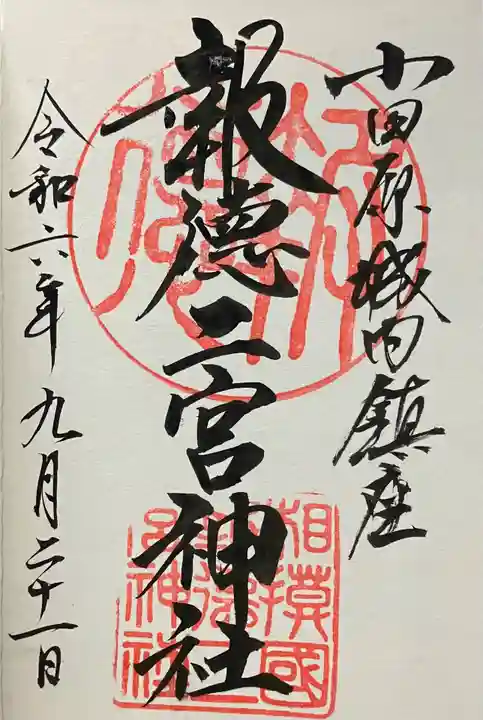 小田原城内鎮座
報徳二宮神社
令和六年九月二十一日
相模國